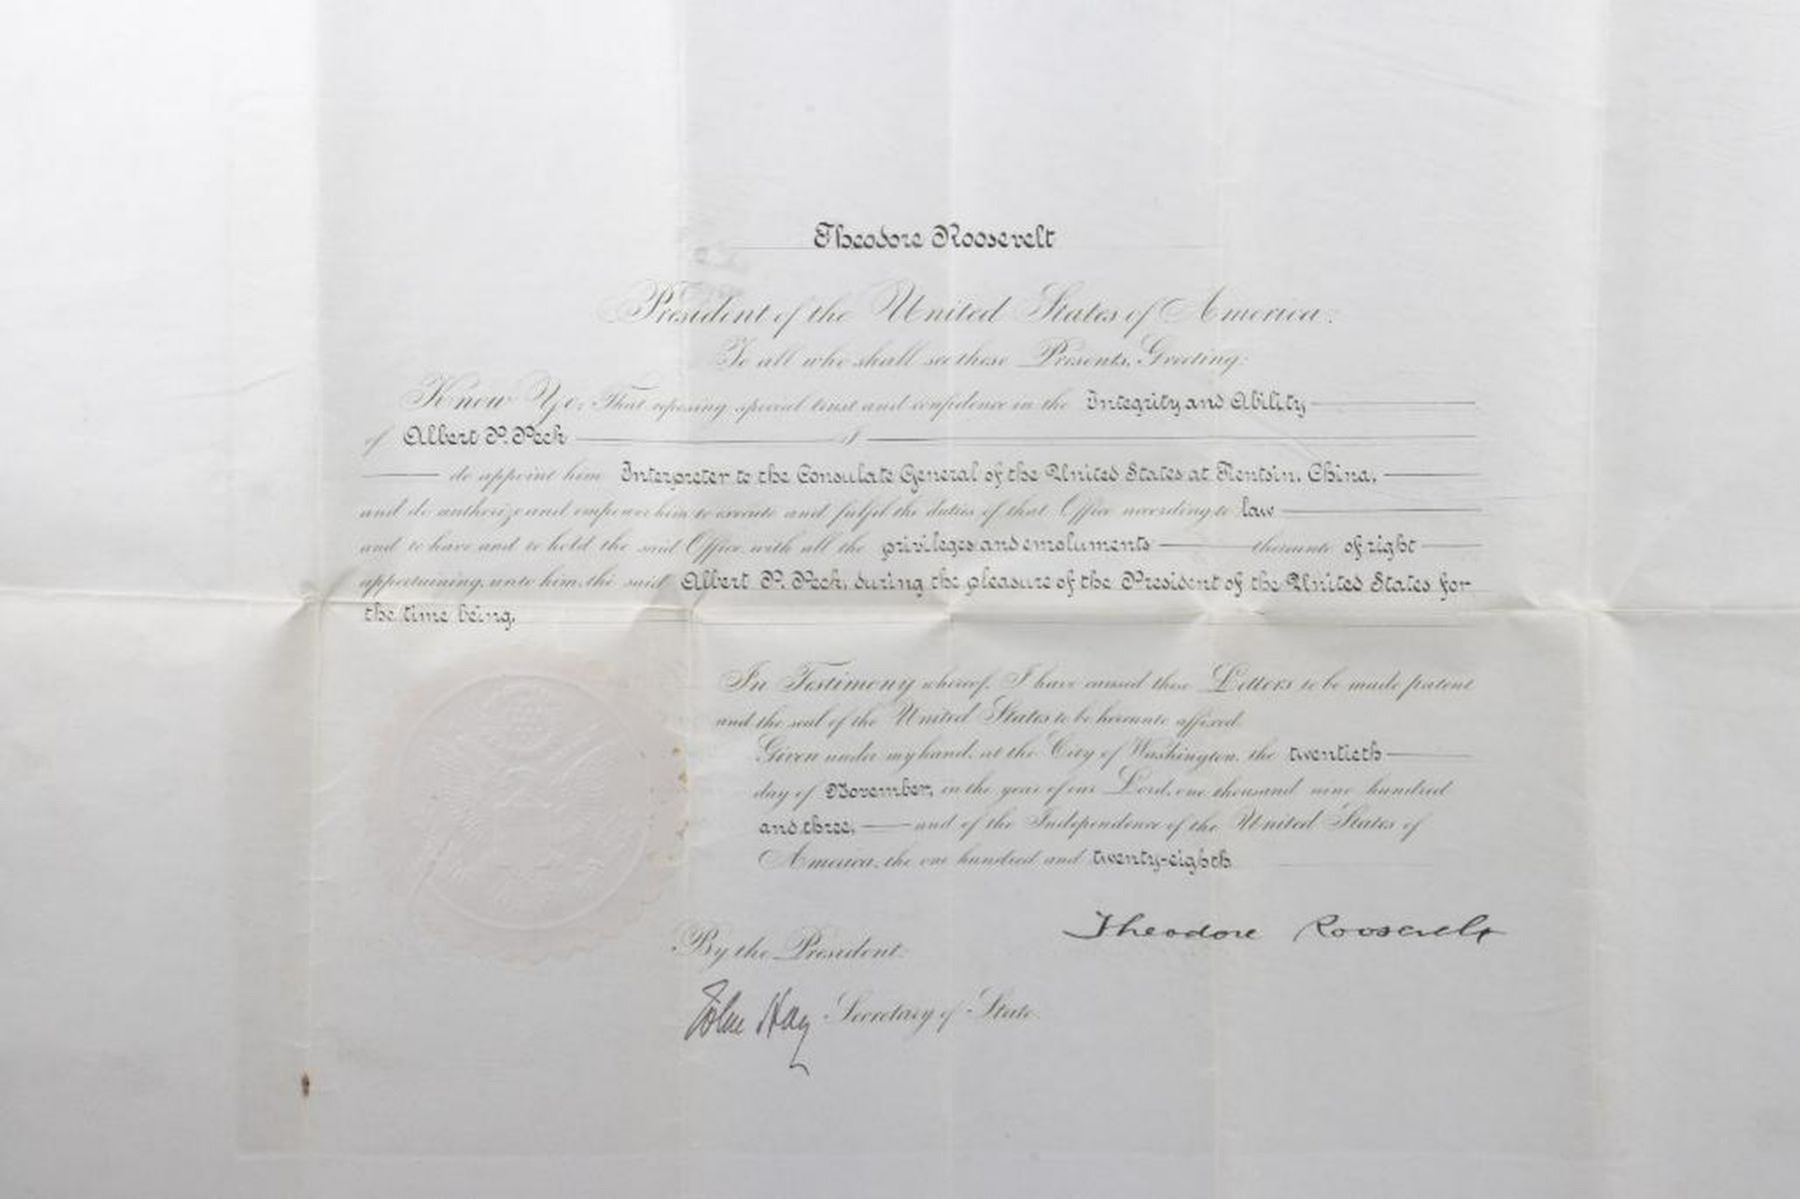 Theodore Roosevelt
President of the United States of America.
To all who shall see these Presents, Greeting:
Know Ye, That reposing special trust and confidence in the Integrity and Ability
of Albert P. Peck I
do appoint him Interpreter to the Consulate General of the United States at Tientsin, China,
and do authorize and empower him to execute and fulfil the duties of that Office according to law
and to have and to hold the said Office, with all the privileges and emoluments thereunto of right
appertaining, unto him, the said Albert P. Peck, during the pleasure of the President of the United States for
the time being.
In Testimony whereof, I have caused these Letters to be made patent
and the seal of the United States to be hereunto affixed.
Given under my hand, at the City of Washington, the twentieth
day of November, in the year of our Lord, one thousand nine hundred
and three, and of the Independence of the United States of
America, the one hundred and twenty-eighth
Theodore Roosevelt
By the President:
John Hay Secretary of State.